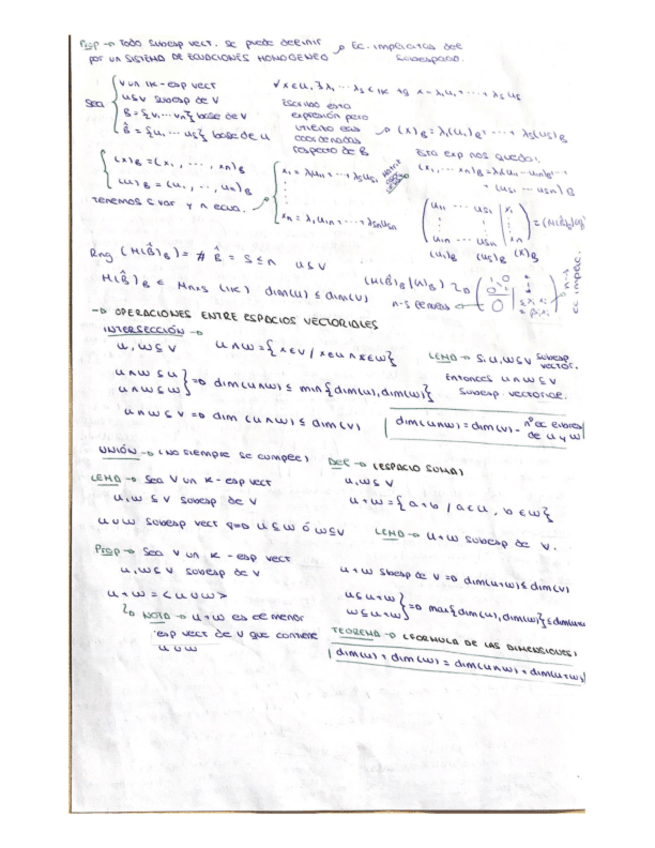 Prop → Todo subesp vect. se puede definir → Ec. implícitas del
por un SISTEMA DE ECUACIONES HOMOGENEO subespacio.
Sea { V un K-esp vect
U ⊆ V subesp de V
B = {v₁ ... vₙ} base de V
B̂ = {u₁ ... us} base de U
∀x∈U, ∃ λ₁ ... λs ∈ K tq x = λ₁u₁ + ... + λsus
Escribo esta
expresión pero
coordenadas
respecto de B → (x)B = λ₁(u₁)B + ... + λs(us)B
{ (x)B = (x₁, ..., xn)B
(ui)B = (ui, ..., un)B
Tenemos s var y n ecua. →
{ x₁ = λ₁u₁₁ + ... + λsus₁
⋮
xn = λ₁u₁n + ... + λsusn
Esta exp nos queda:
(x₁, ... xn)B = λ₁(u₁₁ ... u₁n)B + ...
+ (us₁ ... usn)B
( u₁₁ ... us₁ | x₁
⋮ ⋮ | ⋮
u₁n ... usn | xn ) = (M(B̂)B|
(u₁)B (us)B (x)B
Rng (M(B̂)B) = # B̂ = s ≤ n U ⊆ V
M(B̂)B ∈ Mnxs (K) dim(U) ≤ dim(V)
→ OPERACIONES ENTRE ESPACIOS VECTORIALES
INTERSECCIÓN →
U, W ⊆ V U∩W = {x∈V / x∈U ∧ x∈W}
LEMA → Si U, W ⊆ V subesp vector.
Entonces U∩W ⊆ V
subesp vectorial.
U∩W ⊆ U
U∩W ⊆ W } => dim(U∩W) ≤ min{dim(U), dim(W)}
U∩W ⊆ V => dim (U∩W) ≤ dim(V)
dim(U∩W) = dim(V) - nº ec
de U y W
UNIÓN → (No siempre se cumple)
LEMA → Sea V un K-esp vect
U, W ⊆ V subesp de V
U∪W subesp vect <=> U ⊆ W ó W ⊆ V
DEF → (ESPACIO SUMA)
U, W ⊆ V
U+W = {a+b / a∈U, b∈W}
LEMA → U+W subesp de V.
Prop → Sea V un K-esp vect
U, W ⊆ V subesp de V
U+W = <U∪W>
↳ NOTA → U+W es el menor
esp vect de V que contiene
U∪W
U+W sbesp de V => dim(U+W) ≤ dim(V)
U ⊆ U+W
W ⊆ U+W } => max{dim(U), dim(W)} ≤ dim(U+W
TEOREMA → (FORMULA DE LAS DIMENSIONES)
dim(U) + dim(W) = dim(U∩W) + dim(U+W)